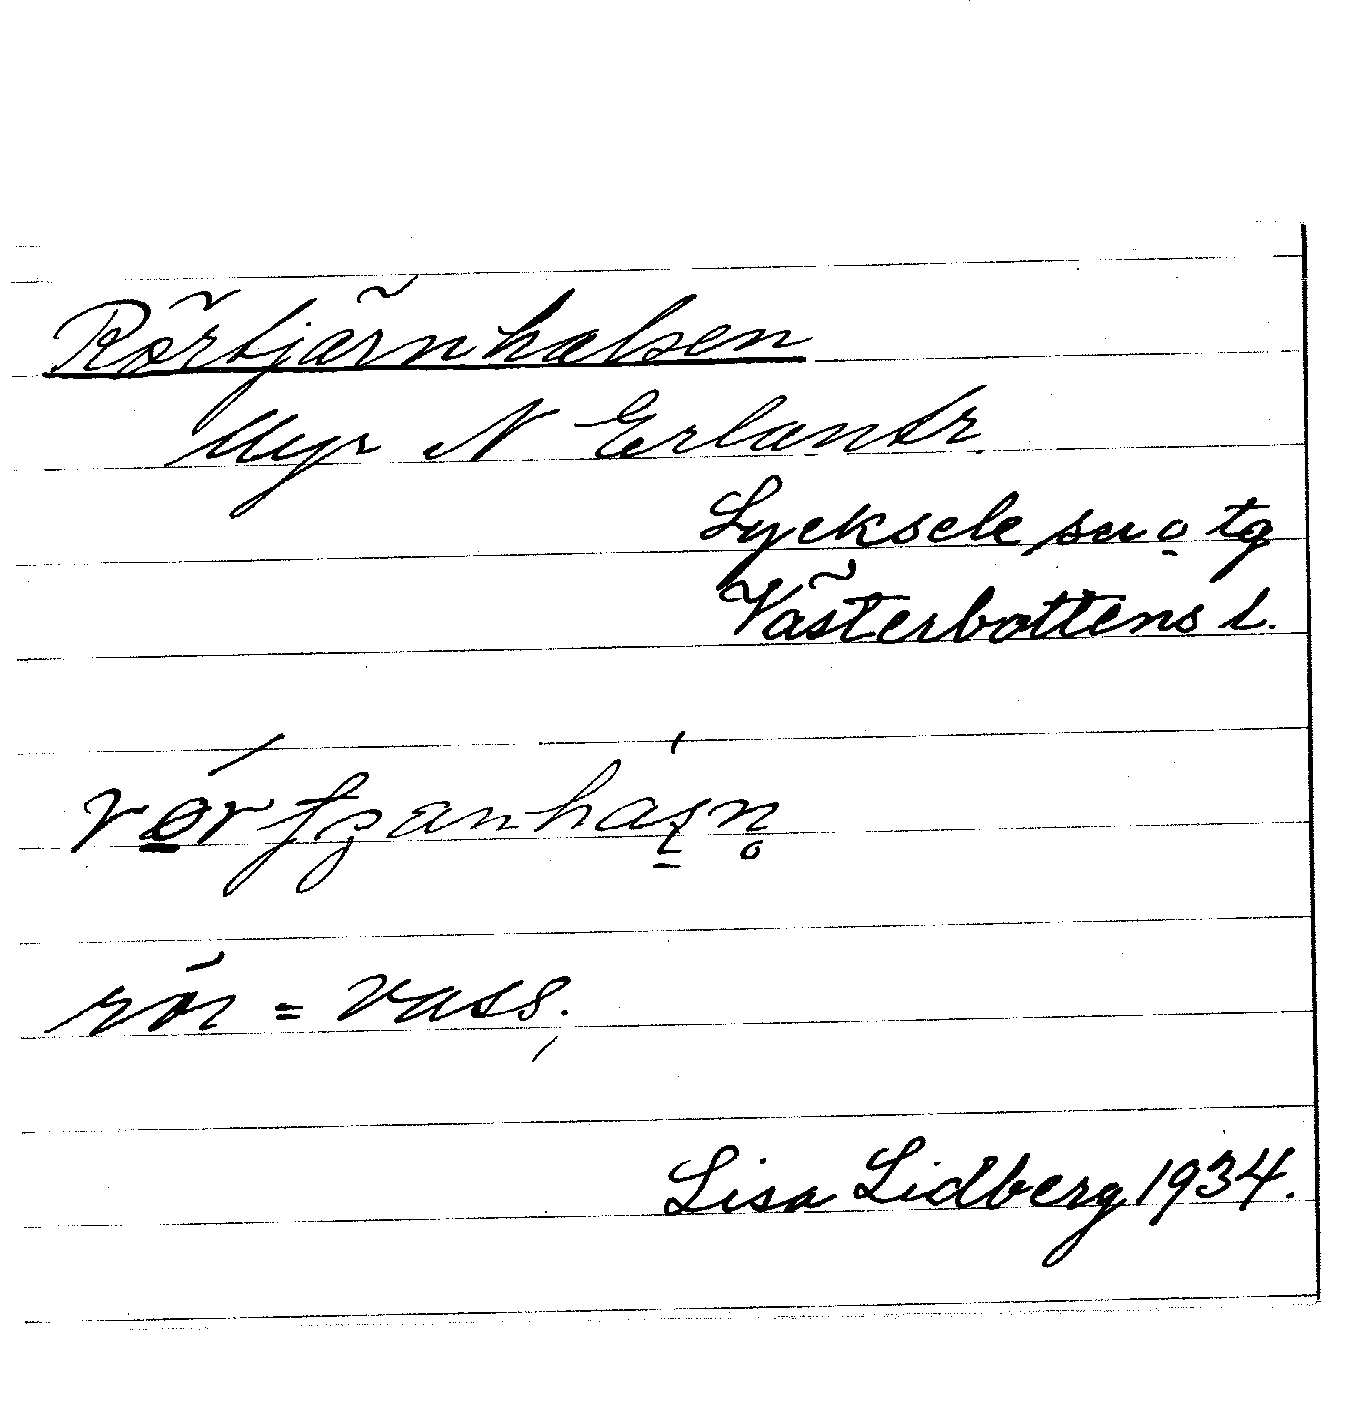 Rörtjärnhalsen
Myr N Erlandr.
Lycksele sn o tg
Västerbottens l.
rör = vass.
Lisa Lidberg 1934.